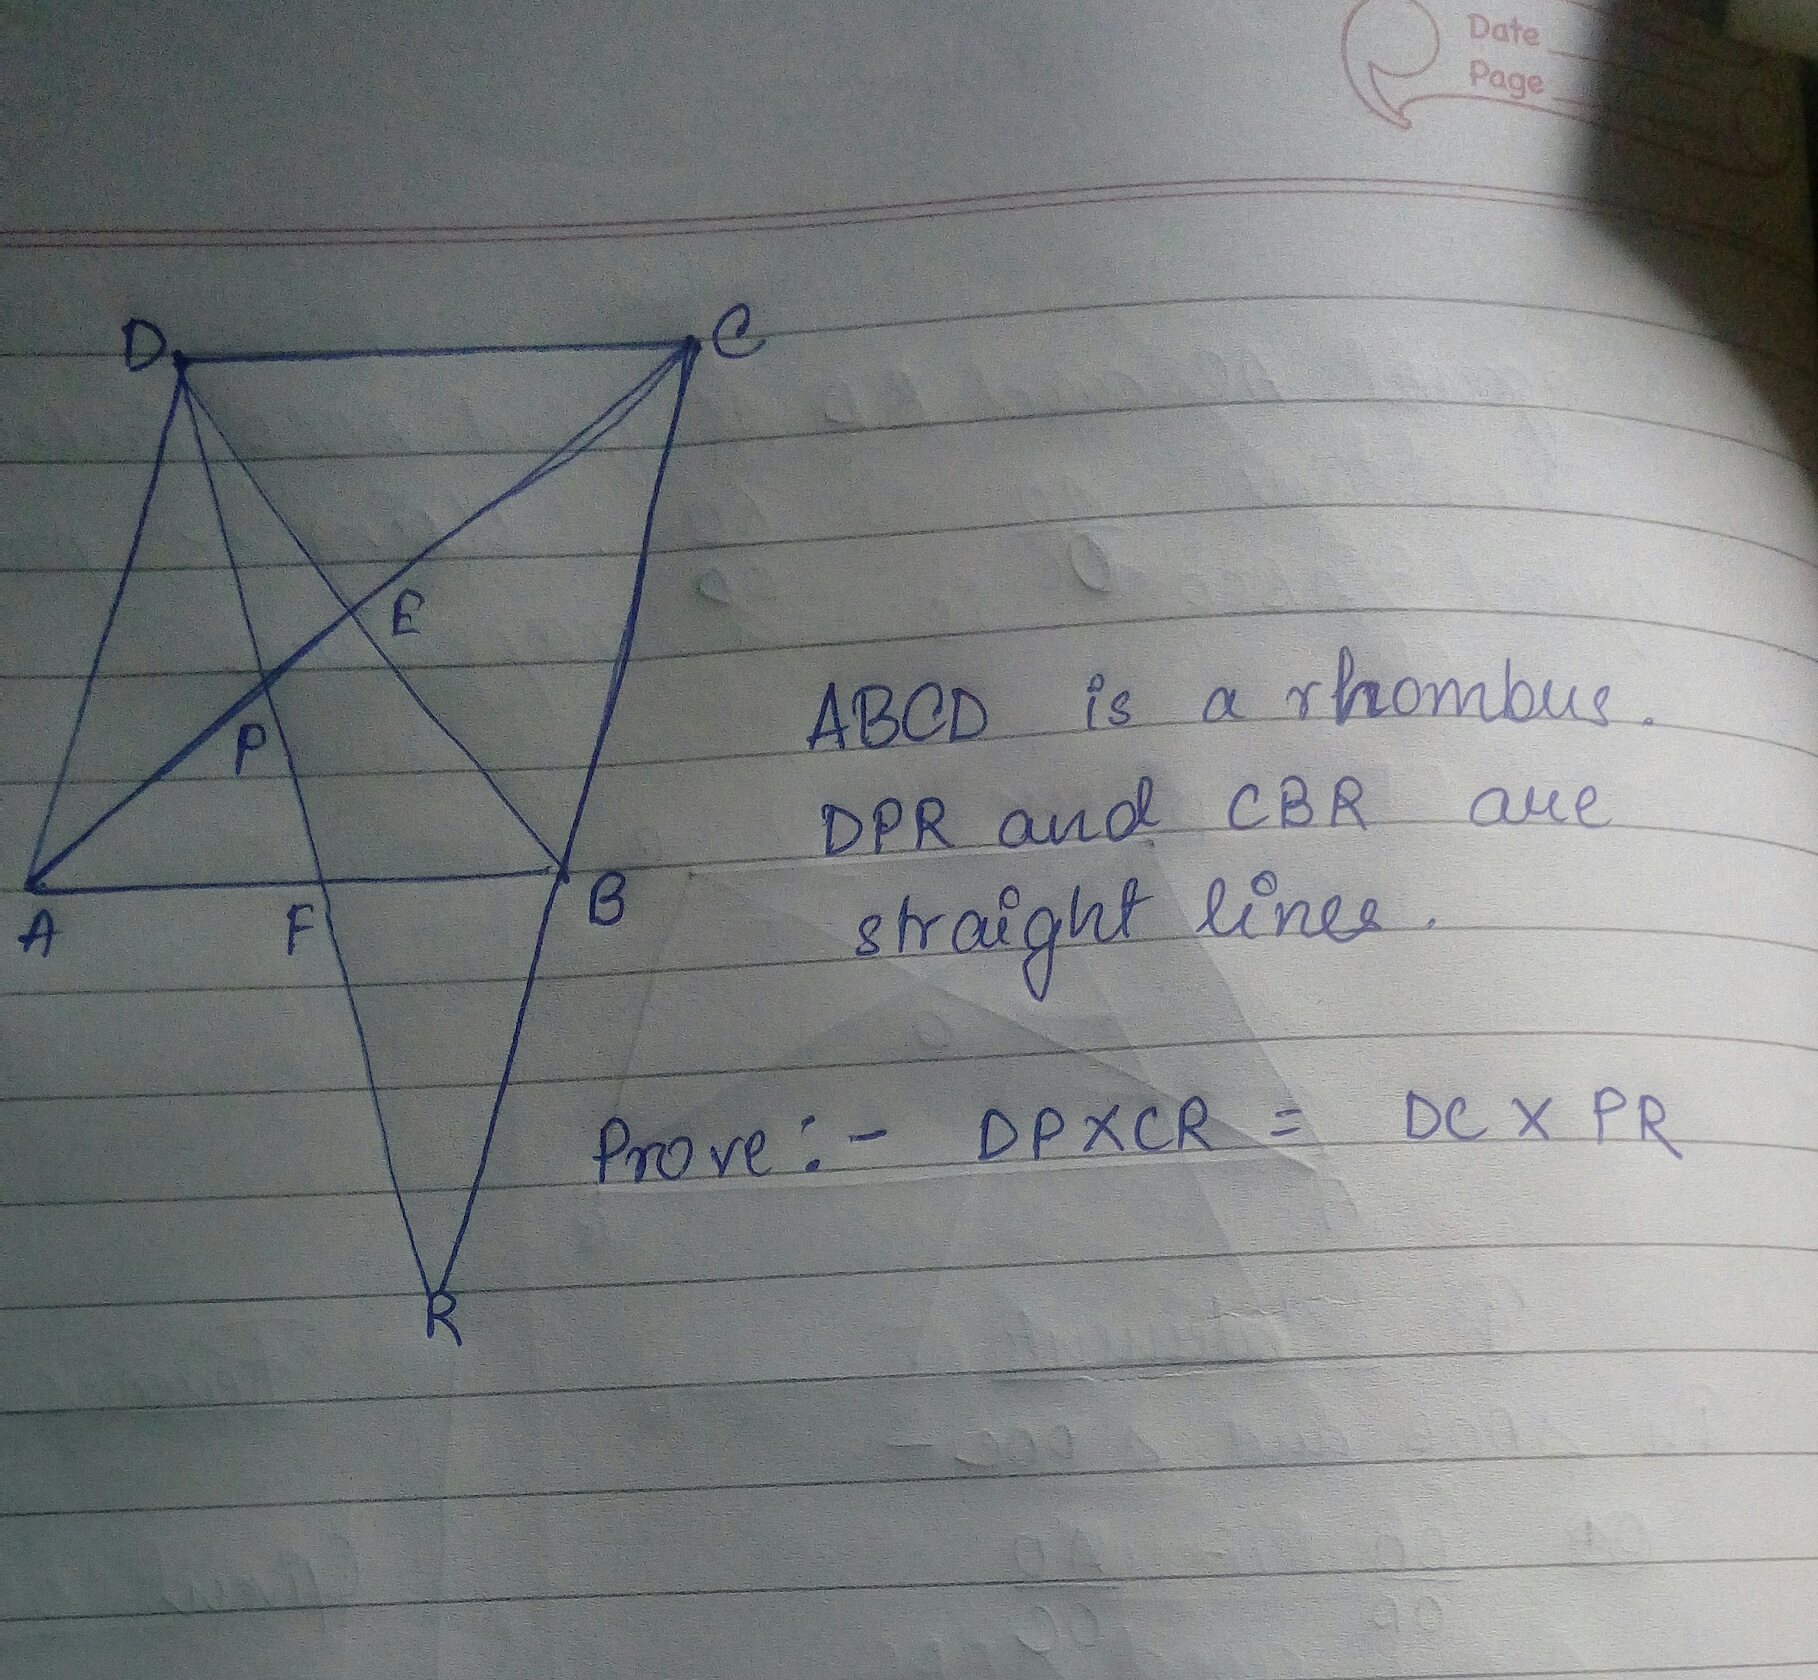 Date
Page
D C
E
P
ABCD is a rhombus.
DPR and CBR are
A F B
straight lines.
Prove:- DPXCR = DC X PR
R